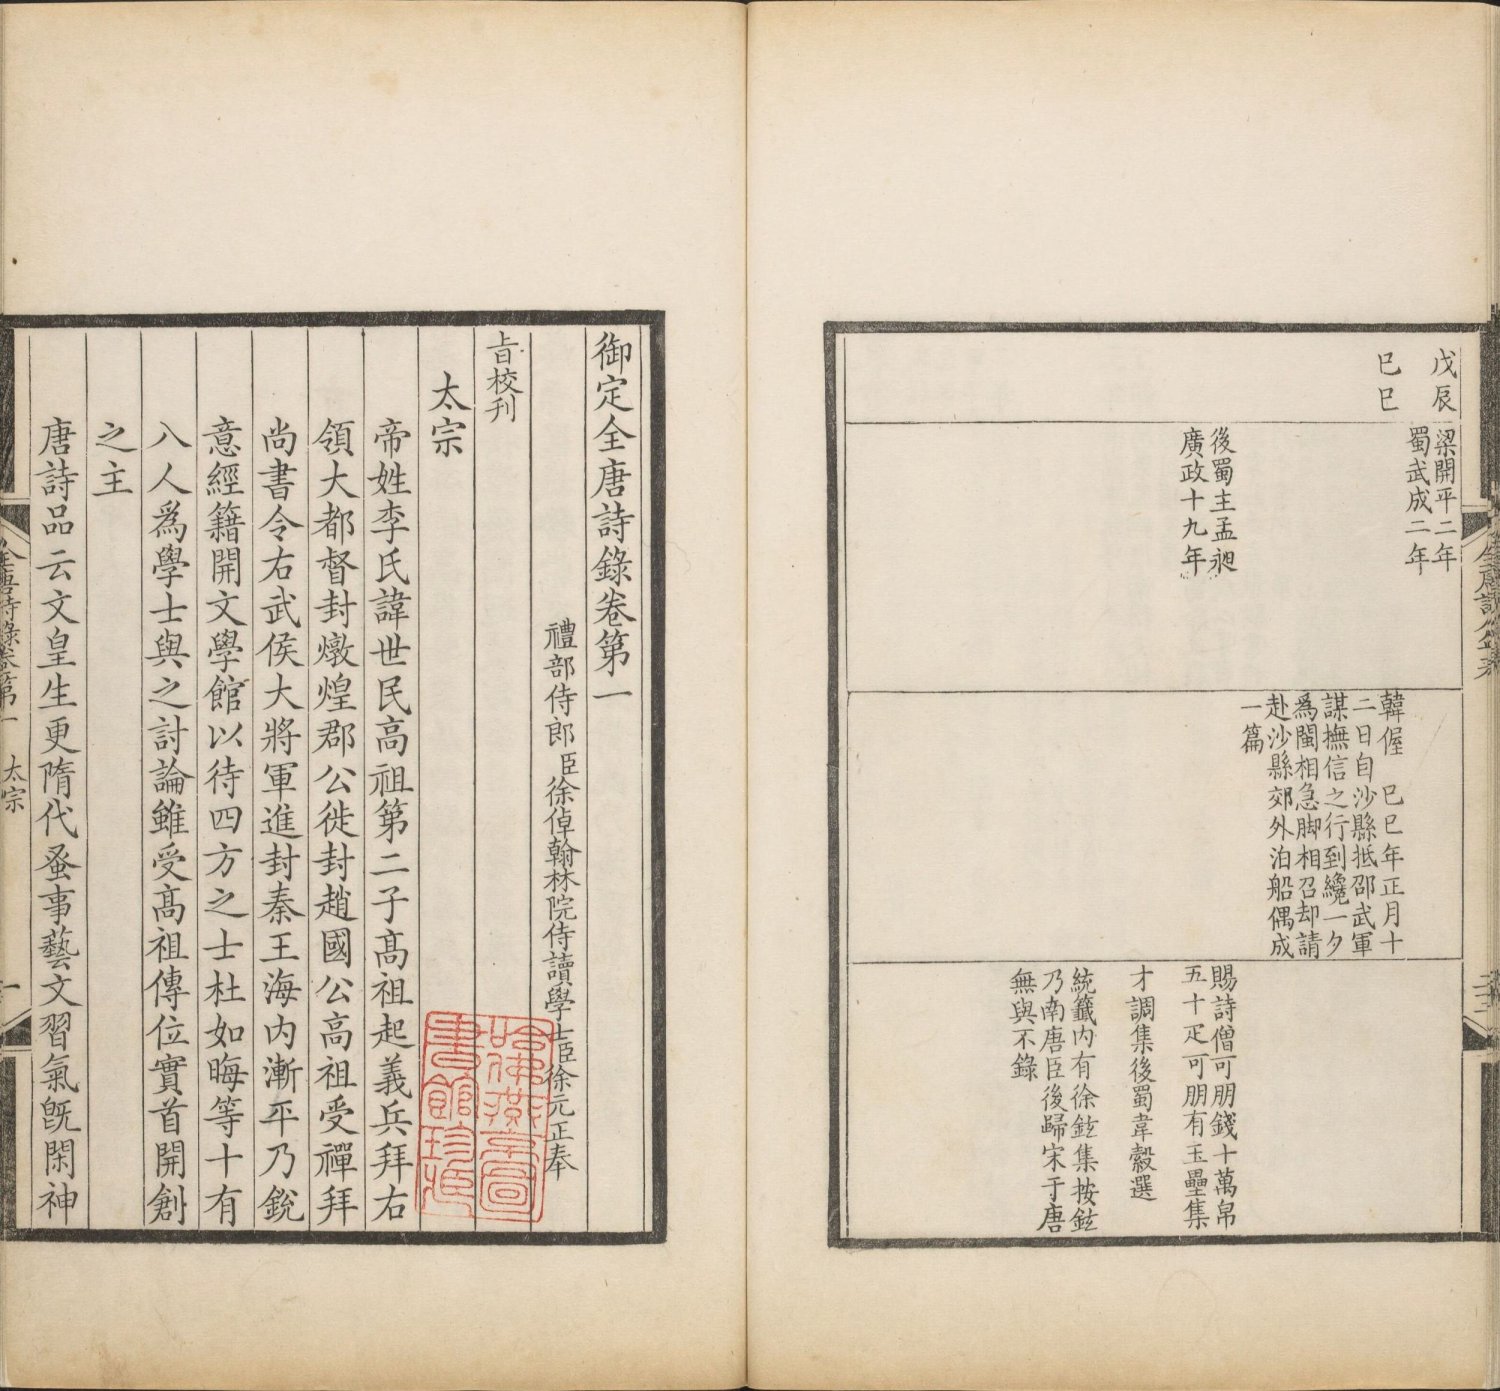 戊辰
巳巳
梁開平二年
蜀武成二年
後蜀主孟昶
廣政十九年
韓偓　巳巳年正月十
二日自沙縣抵邵武軍
謀撫信之行到纔一夕
爲閩相急脚相召却請
赴沙縣郊外泊船偶成
一篇
賜詩僧可朋錢十萬帛
五十疋可朋有玉壘集
才調集後蜀韋縠選
統籤内有徐鉉集按鉉
乃南唐臣後歸宋于唐
無與不錄
御定全唐詩錄卷第一
禮部侍郎臣徐倬翰林院侍讀學士臣徐元正奉
旨校刊
太宗
帝姓李氏諱世民高祖第二子髙祖起義兵拜右
領大都督封燉煌郡公徙封趙國公高祖受禪拜
尚書令右武侯大將軍進封秦王海内漸平乃銳
意經籍開文學館以待四方之士杜如晦等十有
八人爲學士與之討論雖受髙祖傳位實首開創
之主
唐詩品云文皇生更隋代蚤事藝文習氣旣閑神
全唐詩錄卷第一
太宗
一
哈佛燕京圖
書館珍藏